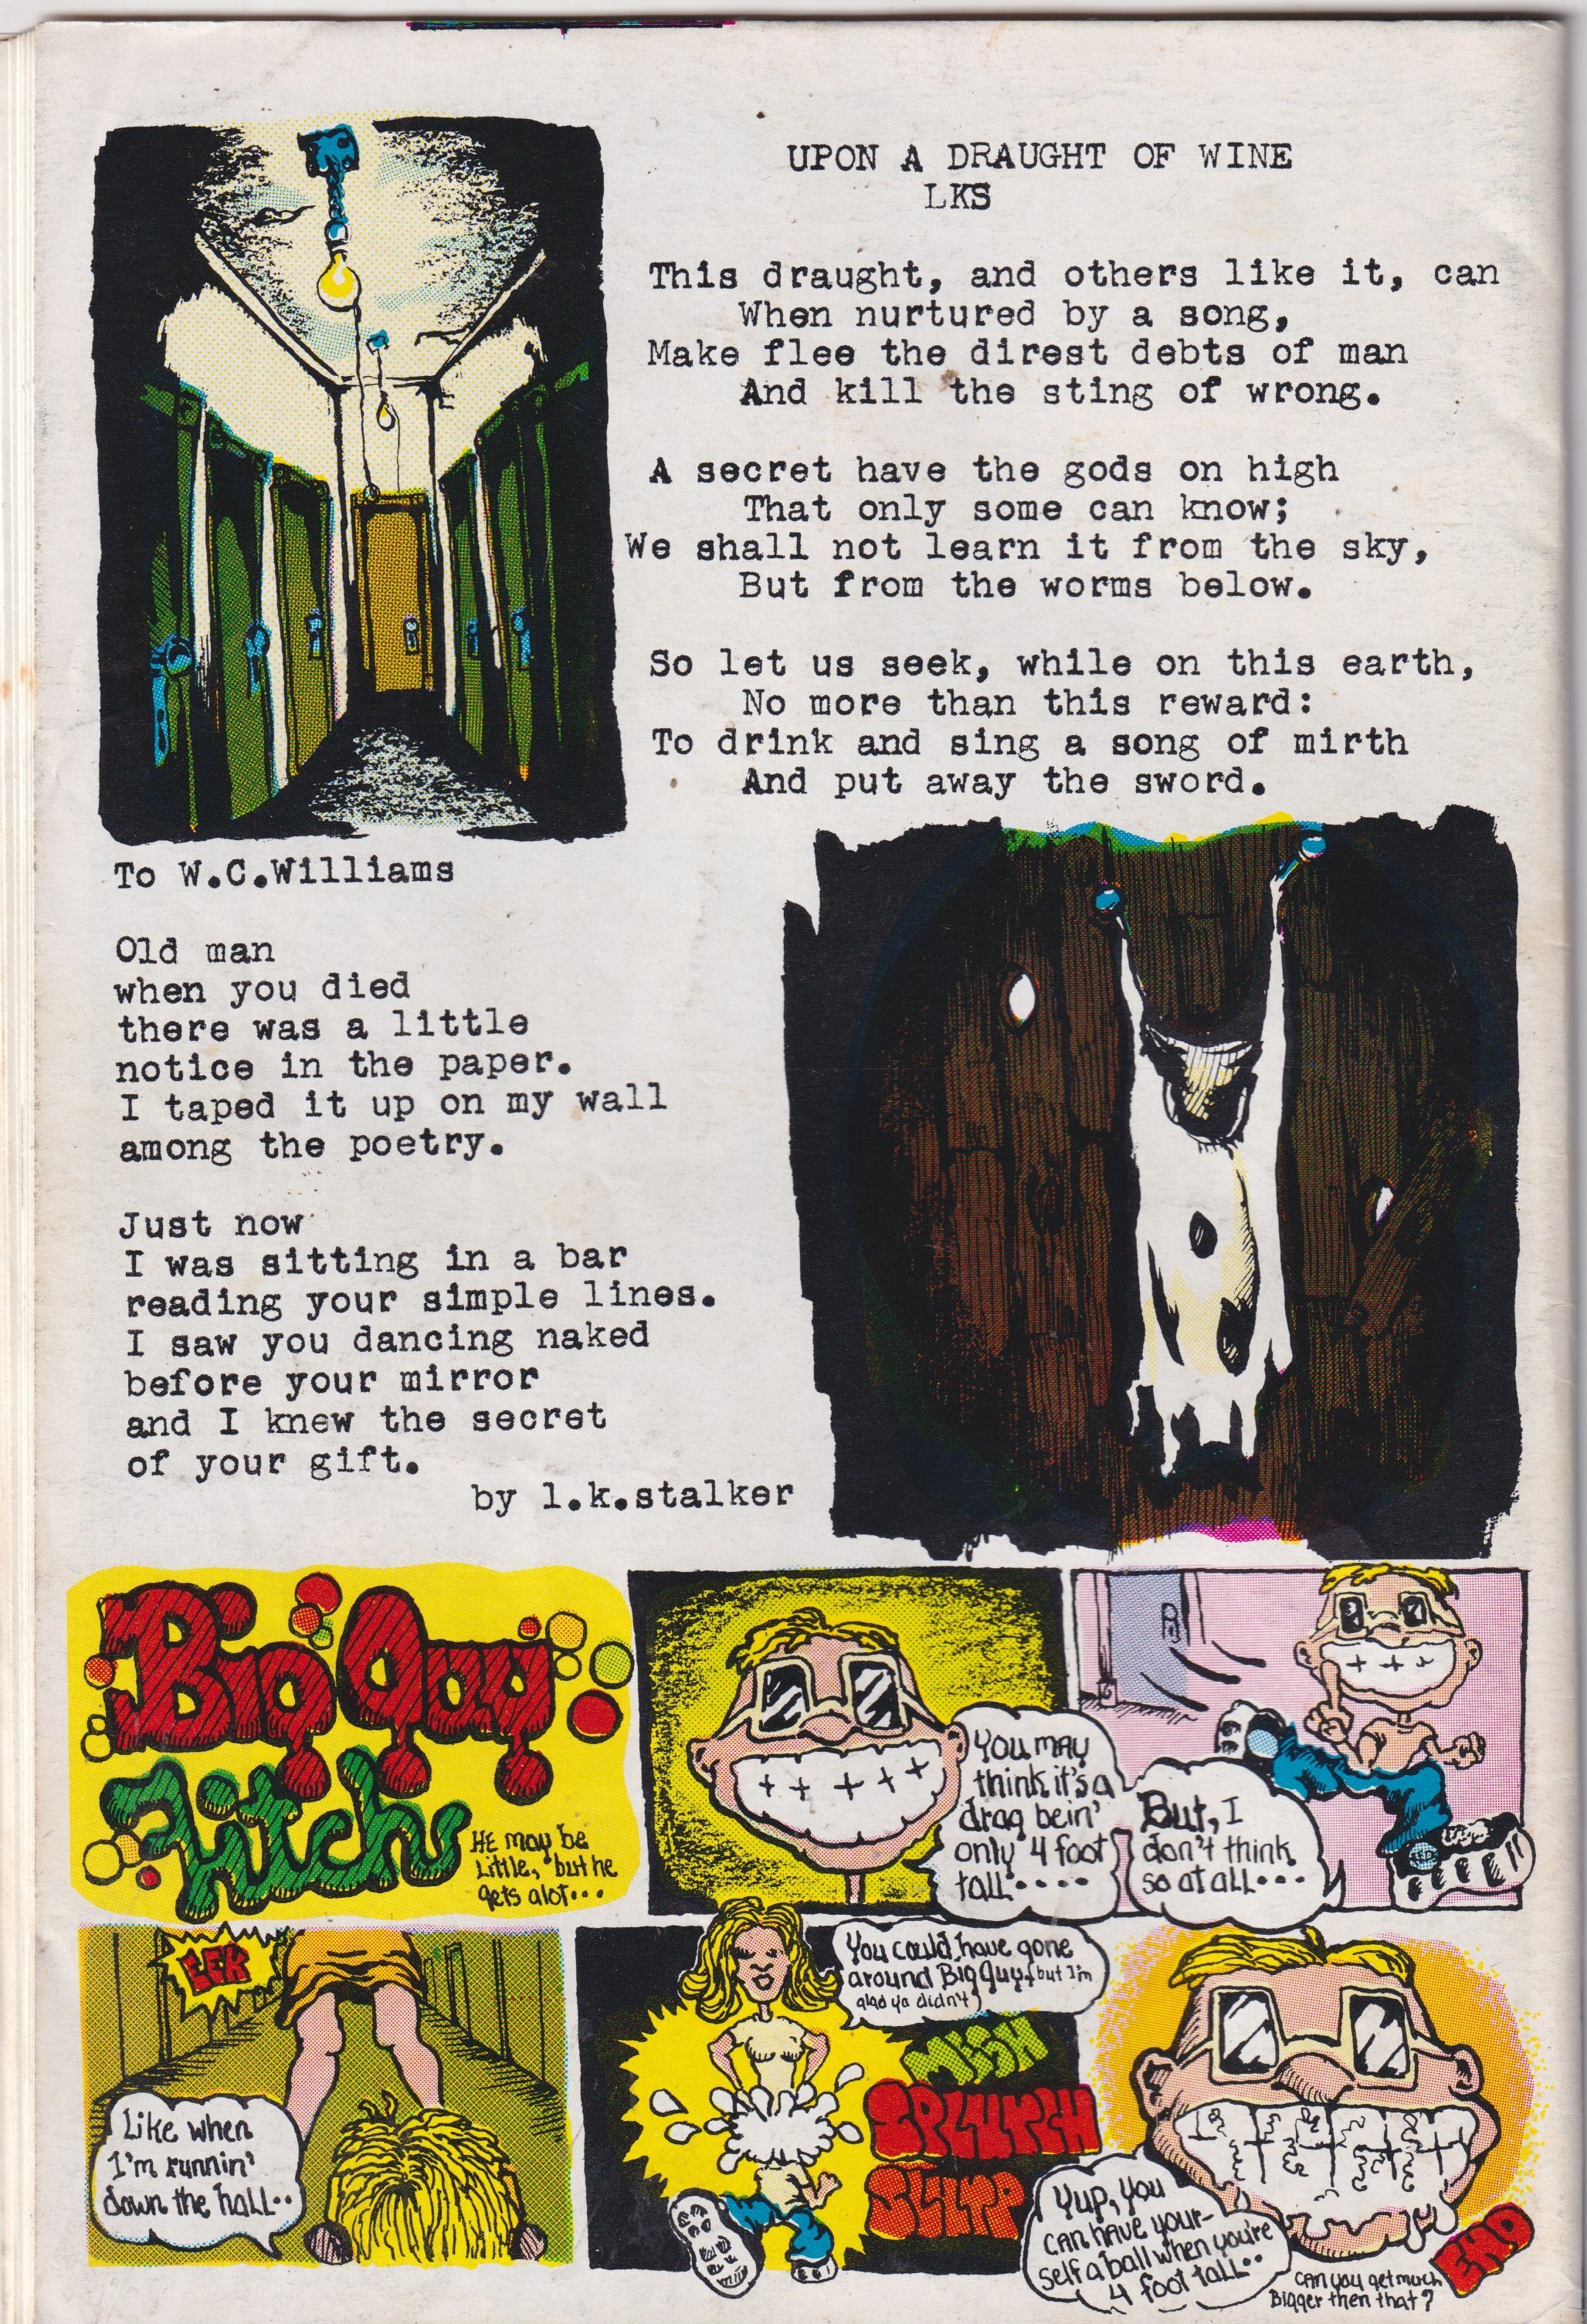 UPON A DRAUGHT OF WINE
LKS
This draught, and others like it, can
When nurtured by a song,
Make flee the direst debts of man
And kill the sting of wrong.
A secret have the gods on high
That only some can know;
We shall not learn it from the sky,
But from the worms below.
So let us seek, while on this earth,
No more than this reward:
To drink and sing a song of mirth
And put away the sword.
To W.C.Williams
Old man
when you died
there was a little
notice in the paper.
I taped it up on my wall
among the poetry.
Just now
I was sitting in a bar
reading your simple lines.
I saw you dancing naked
before your mirror
and I knew the secret
of your gift.
by l.k.stalker
Big Guy
Fitch
HE may be
Little, but he
gets alot...
You may
think it's a
drag bein'
only 4 foot
tall....
But, I
don't think
so at all...
EEK
Like when
I'm runnin'
down the hall..
You could have gone
around Big Guy, but I'm
glad ya didn't
MISH
SPLUTCH
SLURP
Yup, you
can have your-
self a ball when you're
4 foot tall..
can you get much
Bigger then that?
END